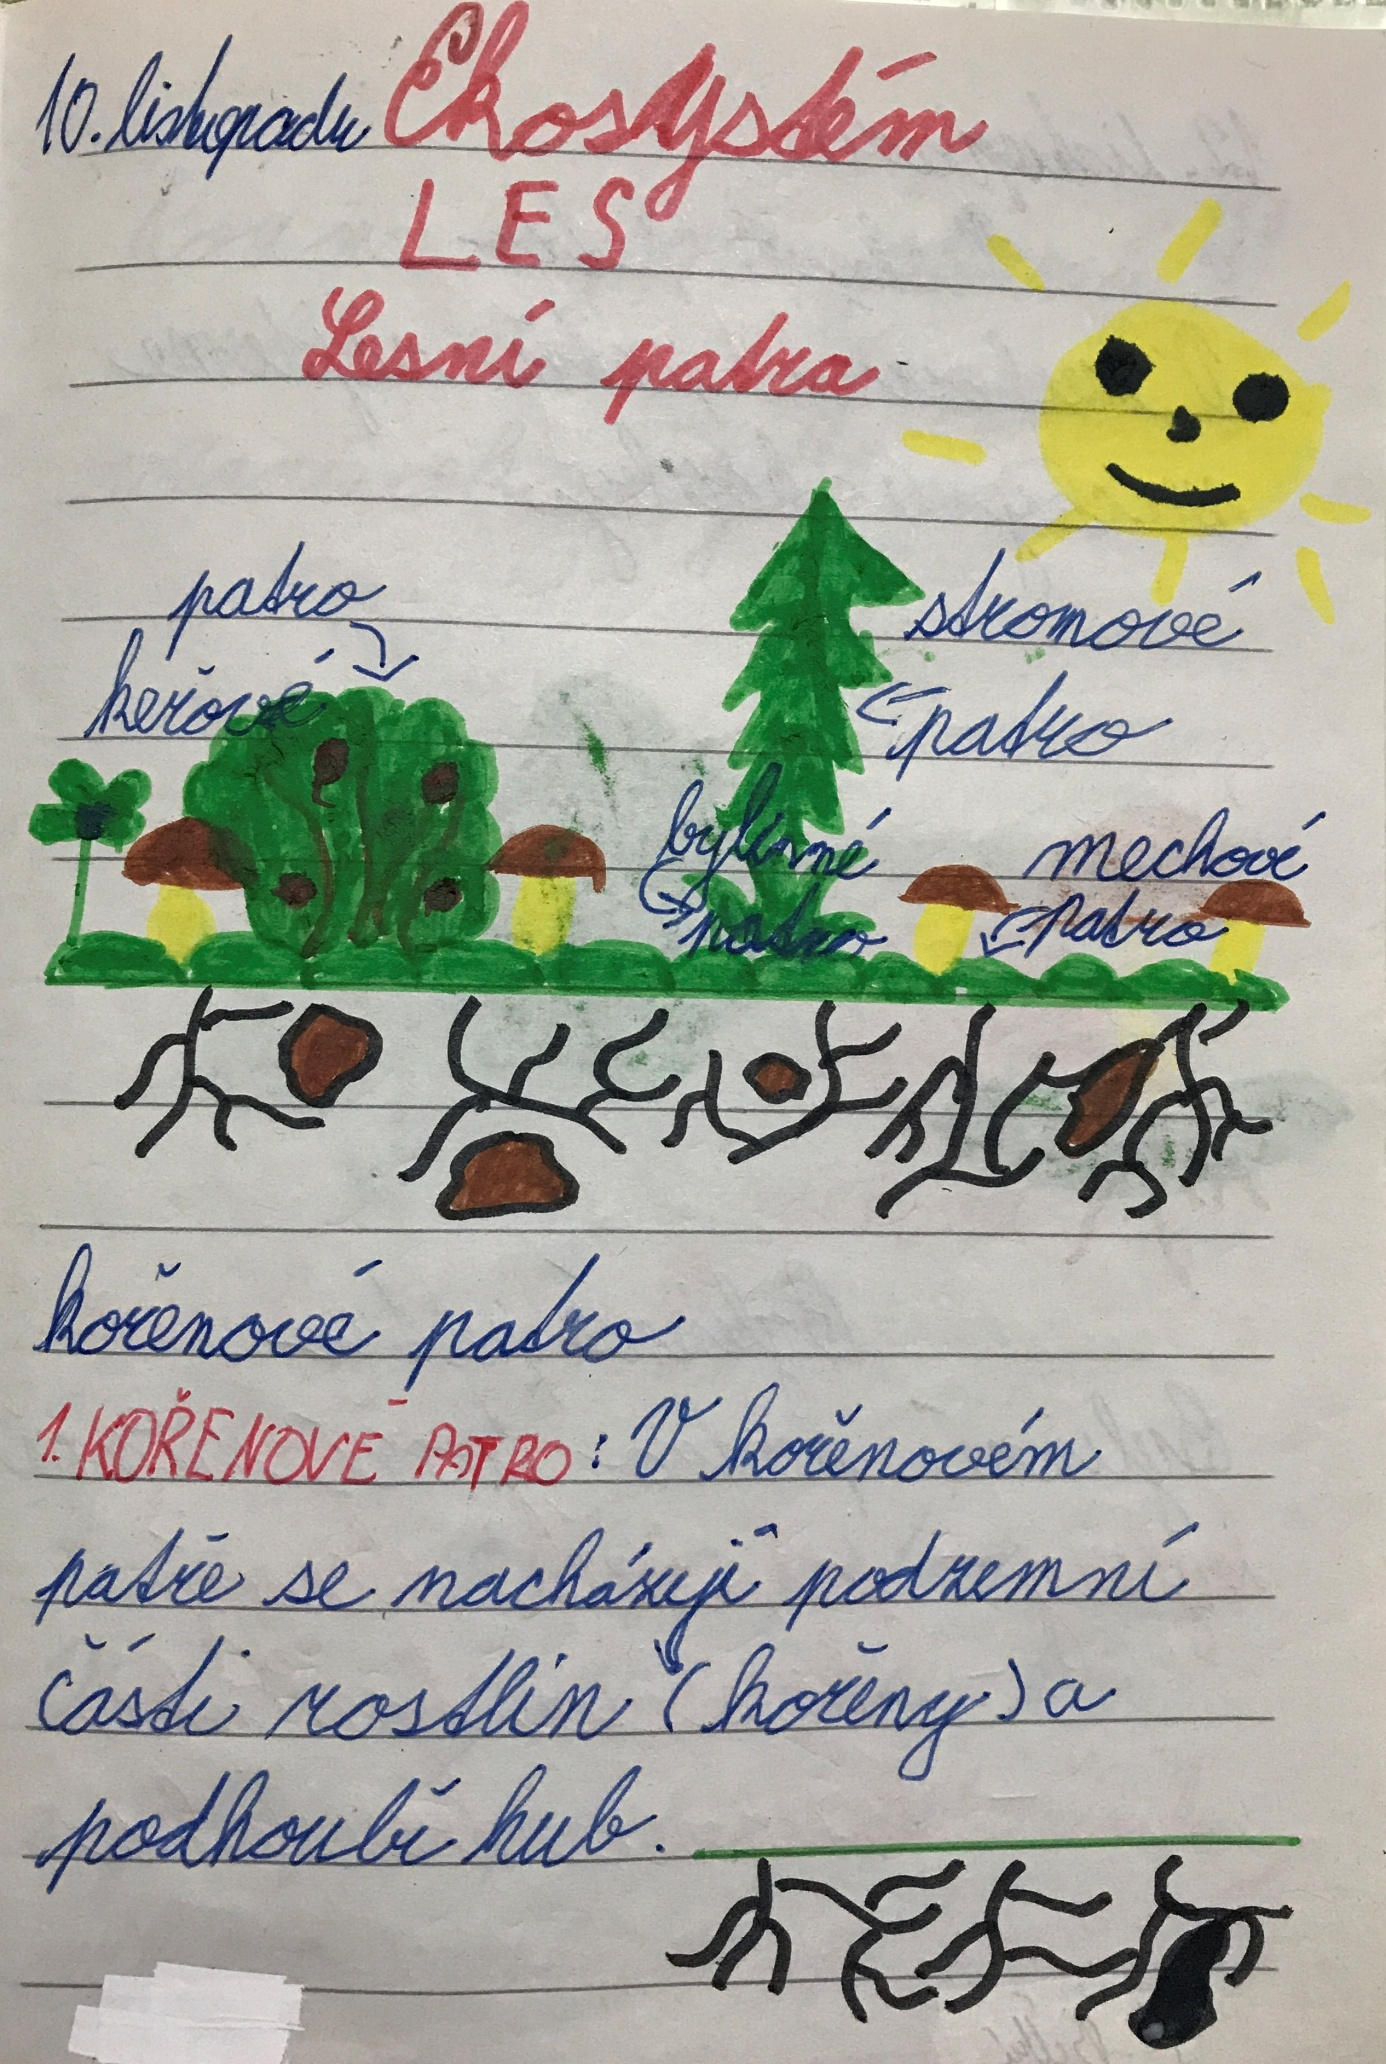 10. listopadu Ekosystém
LES
Lesní patra
patro
keřové
stromové
patro
bylinné
patro
mechové
patro
kořenové patro
1. KOŘENOVÉ PATRO: V kořenovém
patře se nacházejí podzemní
části rostlin (kořeny) a
podhoubí hub.